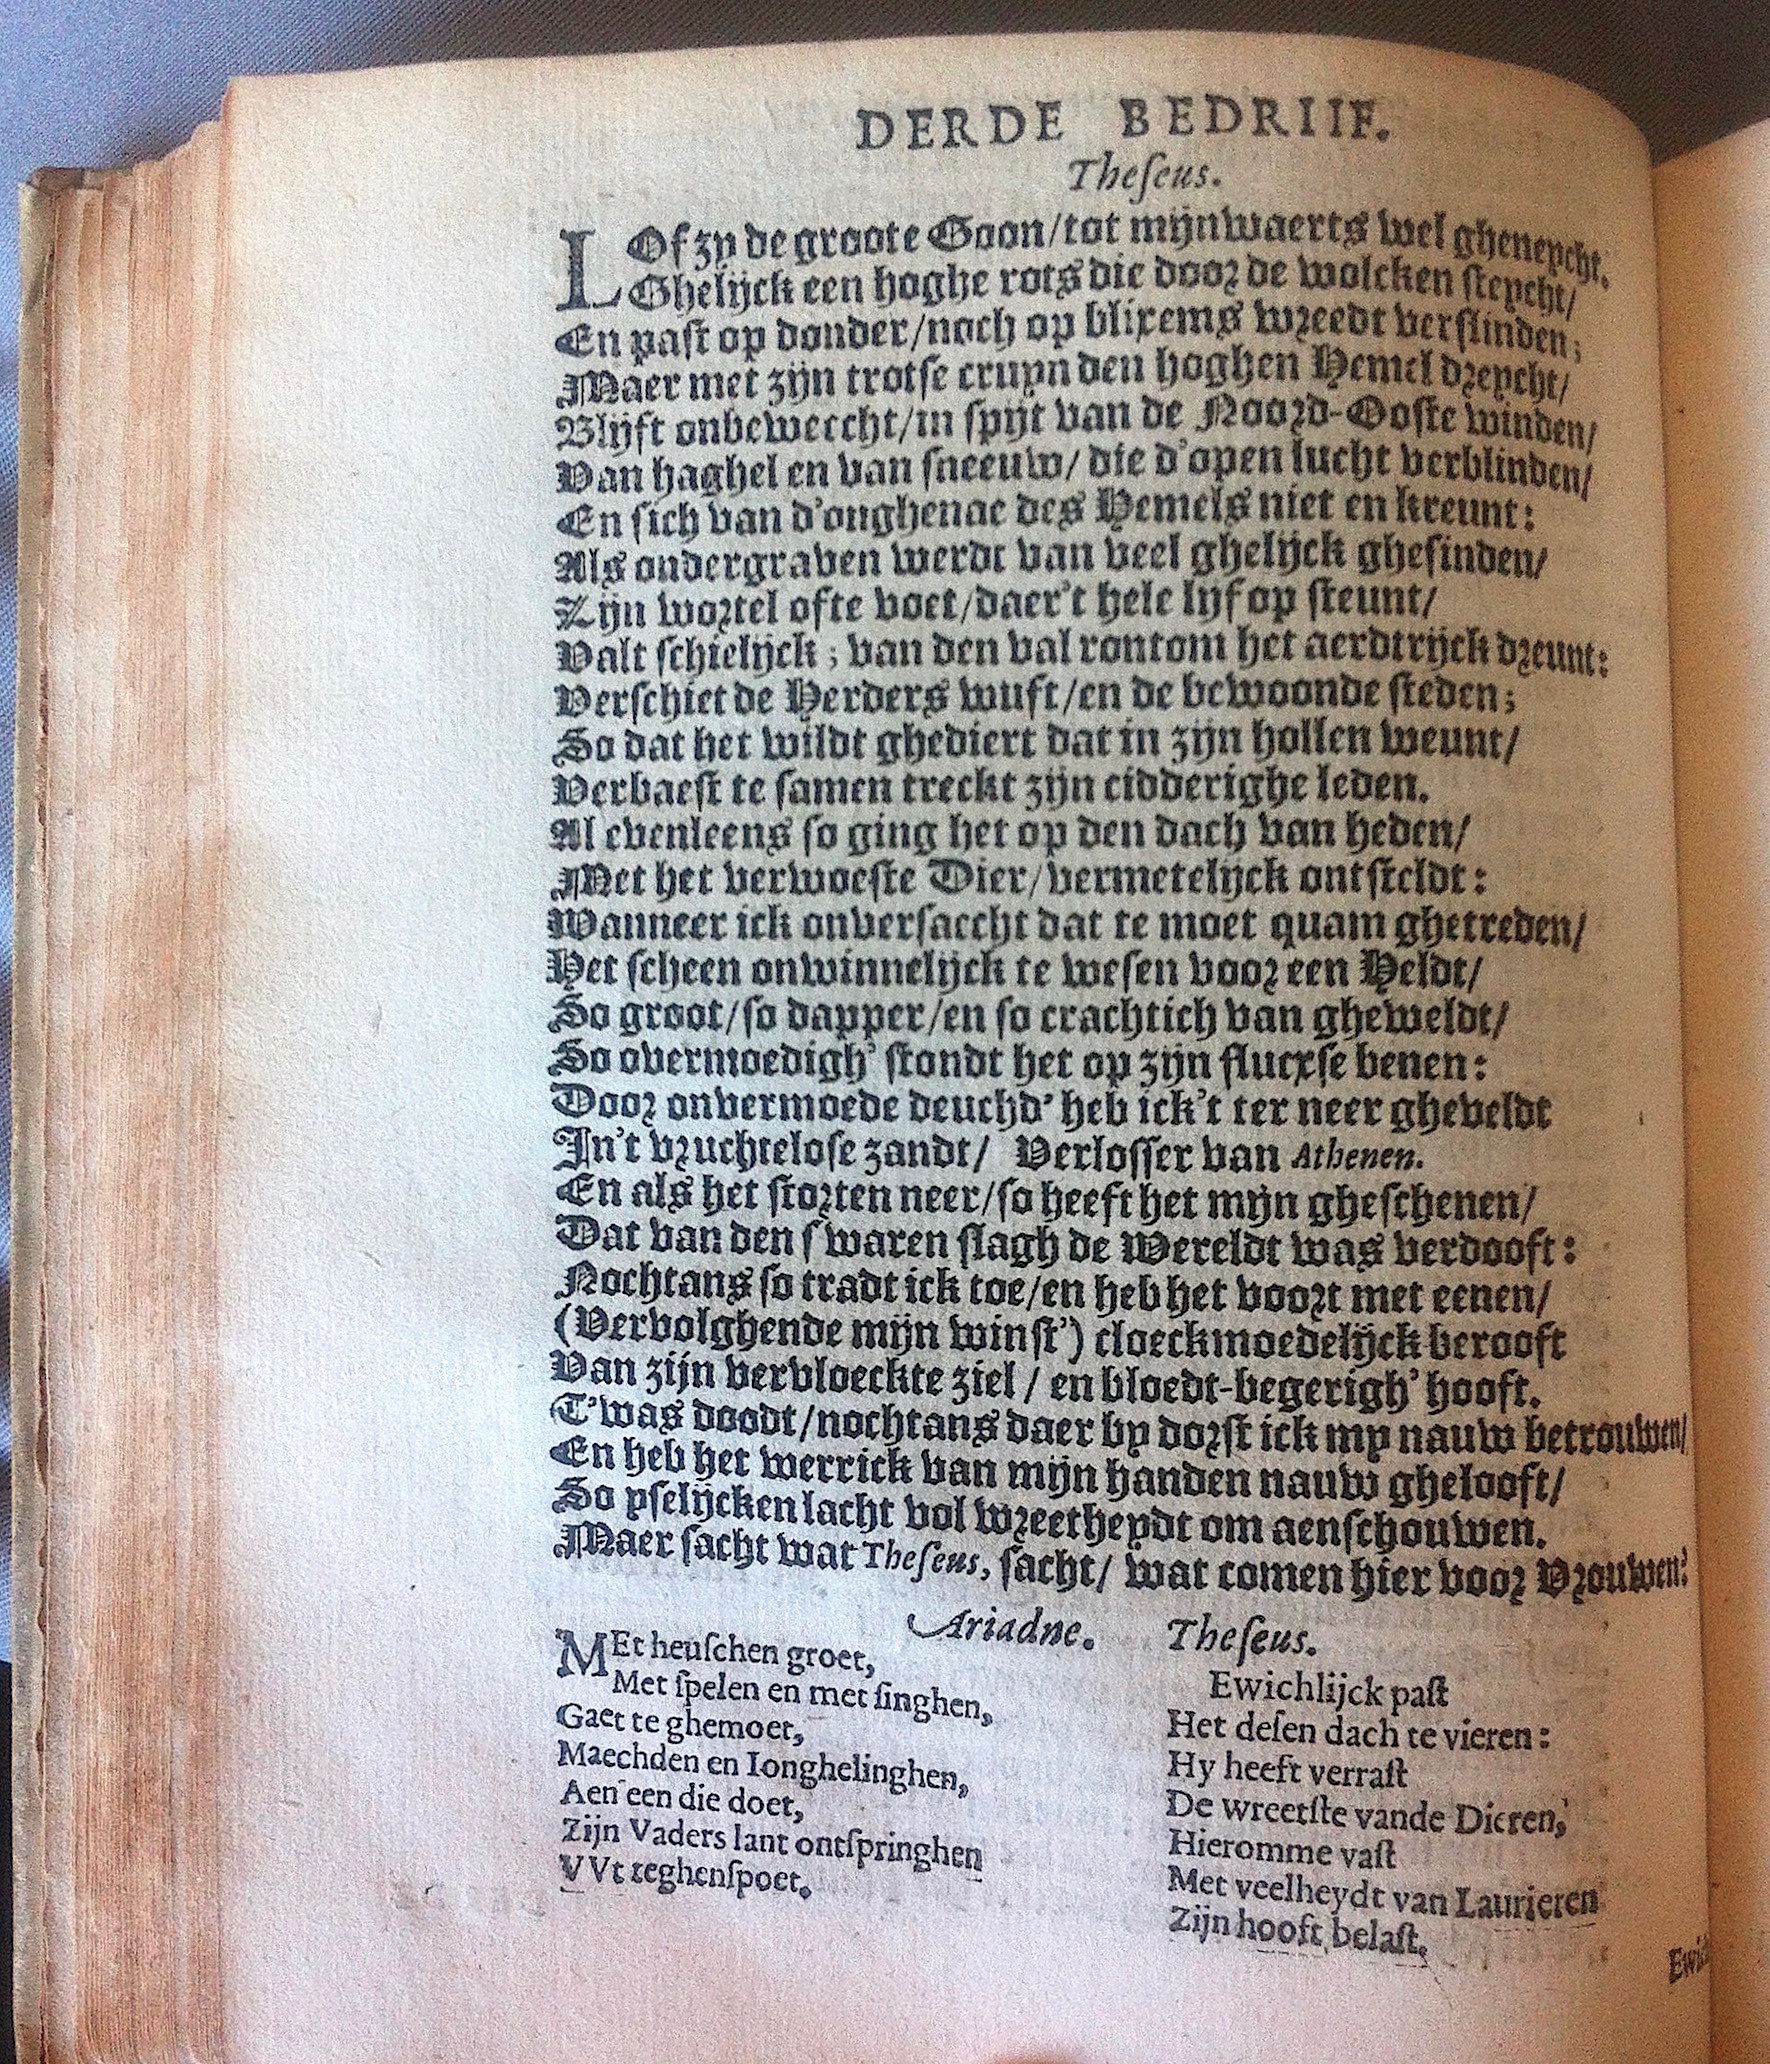 DERDE BEDRIIF.
Theſeus.
LOf zy de groote Goon/tot mijnwaerts wel gheneycht.
Ghelijck een hoghe rots die door de wolcken steycht/
En past op donder/noch op blixems wreedt verslinden;
Maer met zijn trotse cruyn den hoghen Hemel dreycht/
Blijft onbeweecht/in spijt van de Noord-Ooste winden/
Van haghel en van sneeuw/ die d'open lucht verblinden/
En sich van d'onghenae des Hemels niet en kreunt:
Als ondergraven werdt van veel ghelijck ghesinden/
Zijn wortel ofte voet/daer't hele lijf op steunt/
Valt schielijck; van den val rontom het aerdtrijck dreunt:
Verschiet de Herders wuft/en de bewoonde steden;
So dat het wildt ghediert dat in zijn hollen weunt/
Verbaest te samen treckt zijn cidderighe leden.
Al evenleens so ging het op den dach van heden/
Met het verwoeste Dier/vermetelijck ontsteldt:
Wanneer ick onversaecht dat te moet quam ghetreden/
Het scheen onwinnelijck te wesen voor een Heldt/
So groot/so dapper/en so crachtich van gheweldt/
So overmoedigh' stondt het op zijn flucxse benen:
Door onvermoede deuchd' heb ick't ter neer gheveldt
In't vruchtelose zandt/ Verlosser van Athenen.
En als het storten neer/so heeft het mijn gheschenen/
Dat van den swaren slagh de Wereldt was verdooft:
Nochtans so tradt ick toe/en heb het voort met eenen/
(Vervolghende mijn winst') cloeckmoedelijck berooft
Van zijn vervloeckte ziel / en bloedt-begerigh' hooft.
T'was doodt/nochtans daer by dorst ick my nauw betrouwen/
En heb het werrick van mijn handen nauw ghelooft/
So yselijcken lacht vol wreetheydt om aenschouwen.
Maer sacht wat Theſeus, sacht/ wat comen hier voor Vrouwen?
Ariadne.
MEt heuſchen groet,
Met ſpelen en met ſinghen,
Gaet te ghemoet,
Maechden en Ionghelinghen,
Aen een die doet,
Zijn Vaders lant ontſpringhen
VVt teghenſpoet.
Theſeus.
Ewichlijck paſt
Het deſen dach te vieren:
Hy heeft verraſt
De wreetſte vande Dieren,
Hieromme vaſt
Met veelheydt van Laurieren
Zijn hooft belaſt.